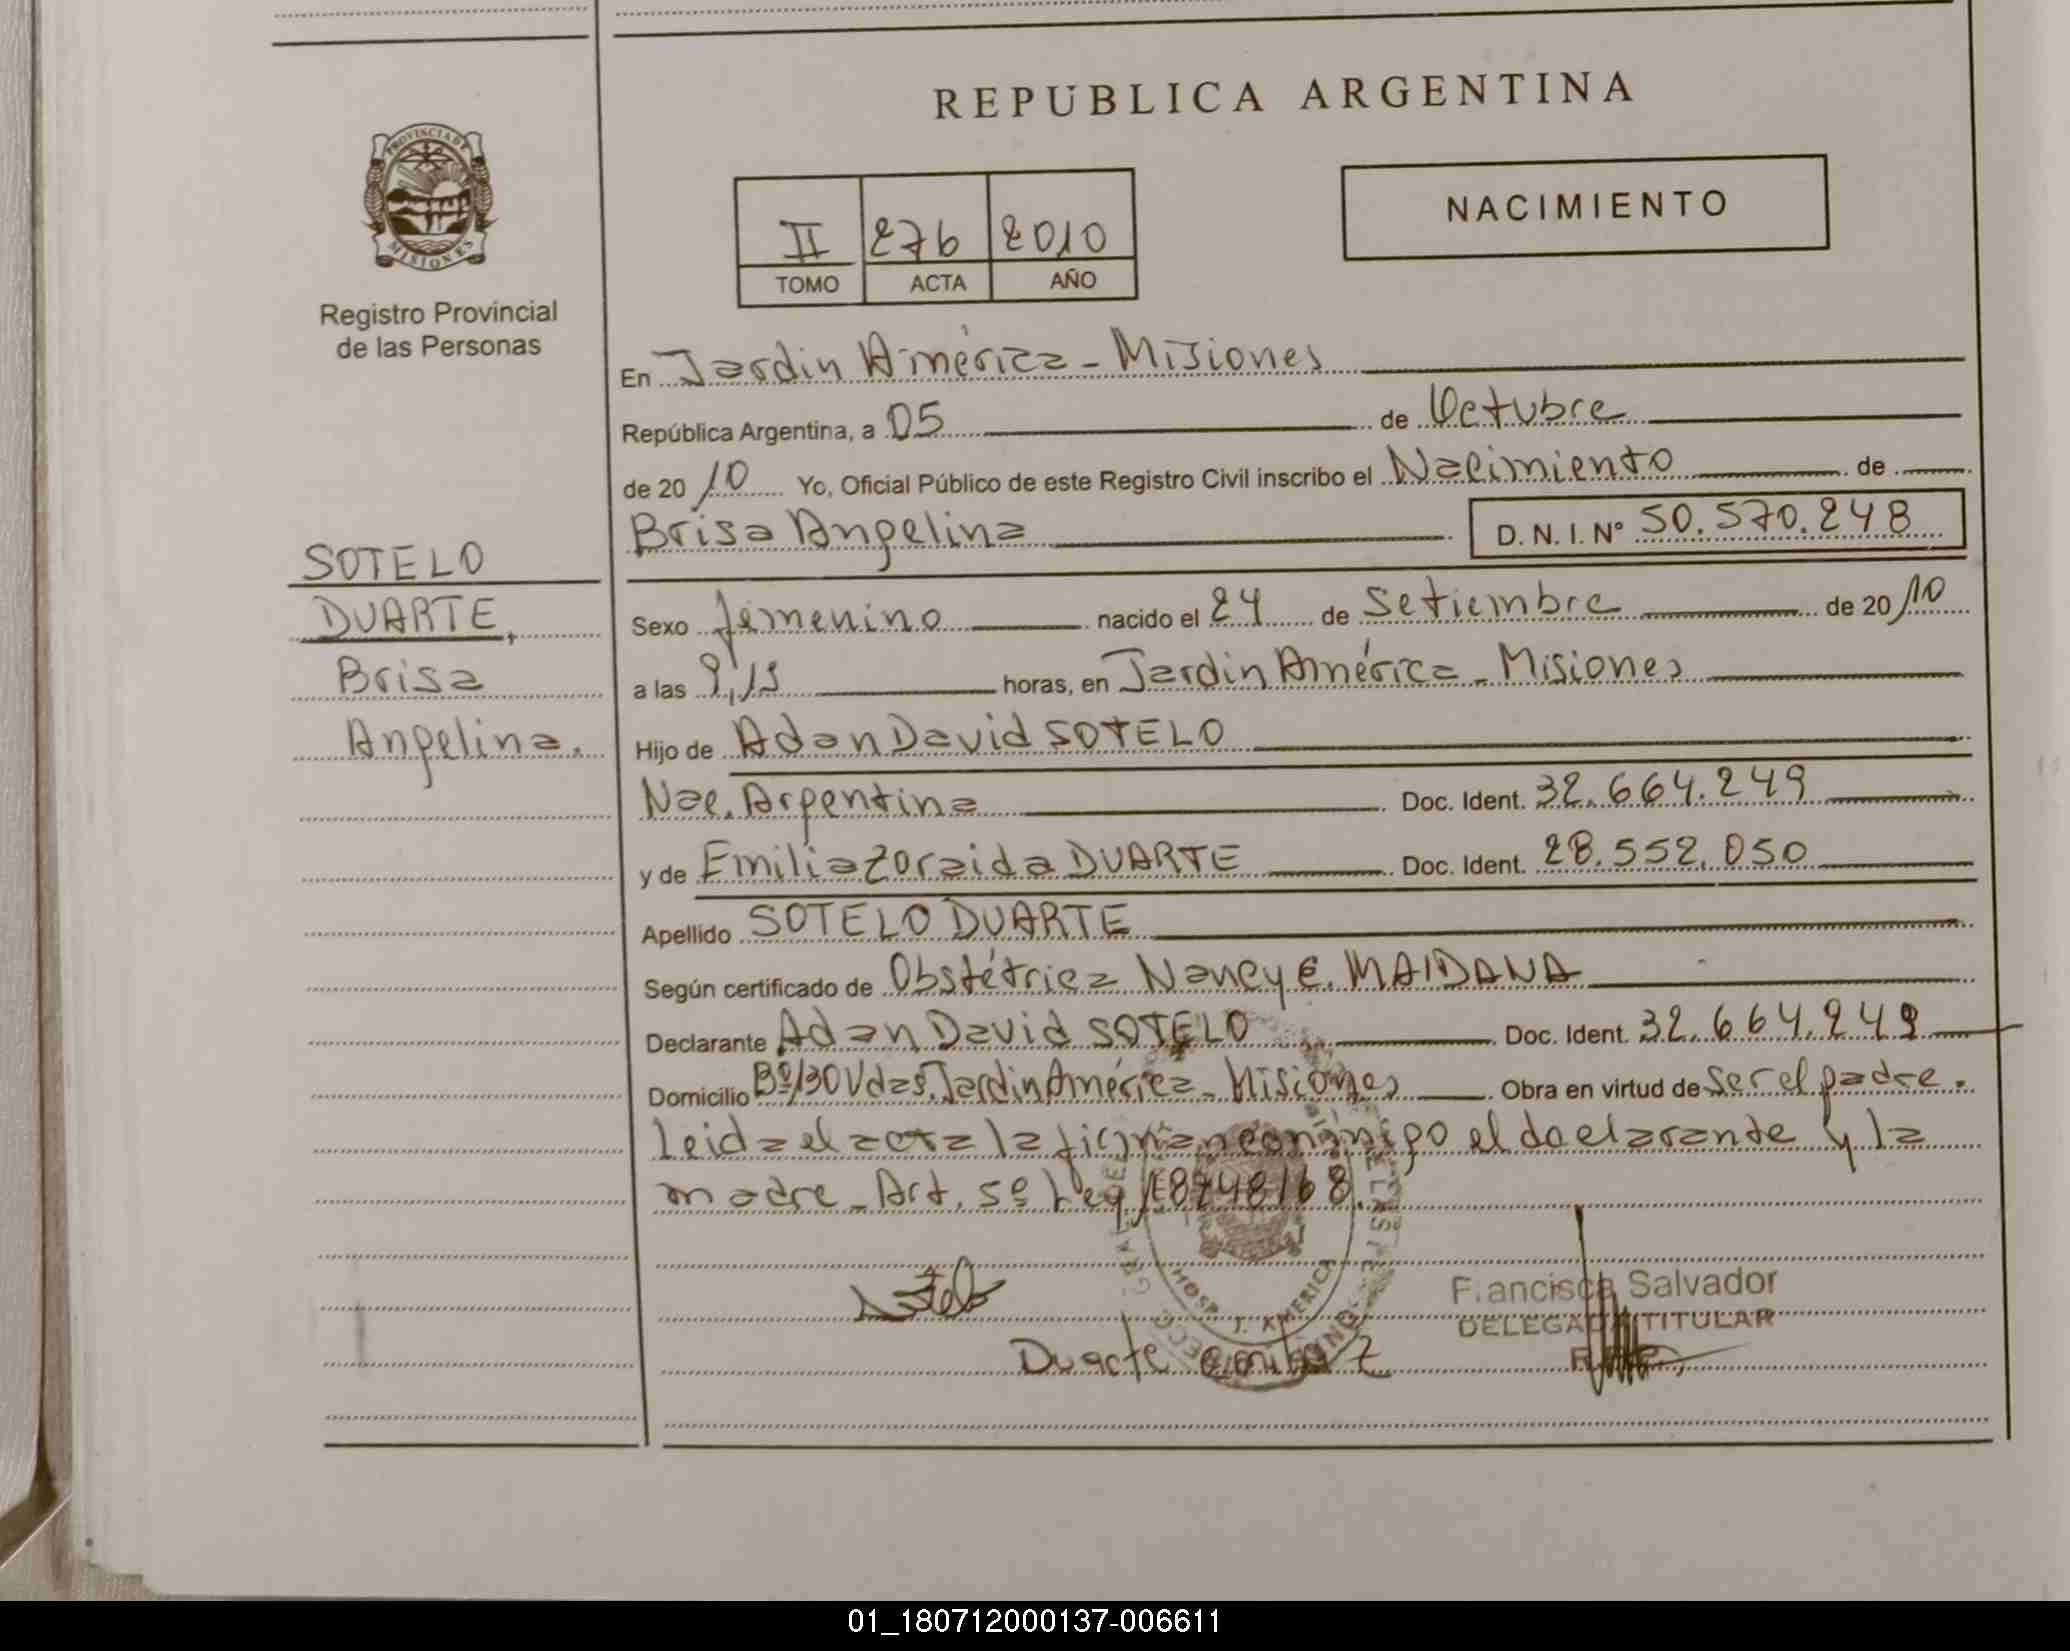 REPUBLICA ARGENTINA
PROVINCIA DE
MISIONES
Registro Provincial
de las Personas
NACIMIENTO
II 276 2010
TOMO ACTA AÑO
En Jardin América - Misiones
República Argentina, a 05 de Octubre
de 20 10 Yo, Oficial Público de este Registro Civil inscribo el Nacimiento de
Brisa Angelina D. N. I. N° 50.570.248
SOTELO
DUARTE,
Brisa
Angelina.
Sexo femenino nacido el 24 de Setiembre de 20 10
a las 9,15 horas, en Jardin América - Misiones
Hijo de Adan David SOTELO
Nac. Argentina Doc. Ident. 32.664.249
y de Emilia Zoraida DUARTE Doc. Ident. 28.552.050
Apellido SOTELO DUARTE
Según certificado de Obstétrica Nancy E. MAIDANA
Declarante Adan David SOTELO Doc. Ident. 32.664.249
Domicilio Bº 130 Vdas. Jardin América - Misiones Obra en virtud de ser el padre.
Leida el acta la firman conmigo el declarante y la
madre - Art. 5º Ley 18248/68.
Sotelo
HOSP. J. AMERICA
Duarte
Francisca Salvador
DELEGADA TITULAR
01_180712000137-006611